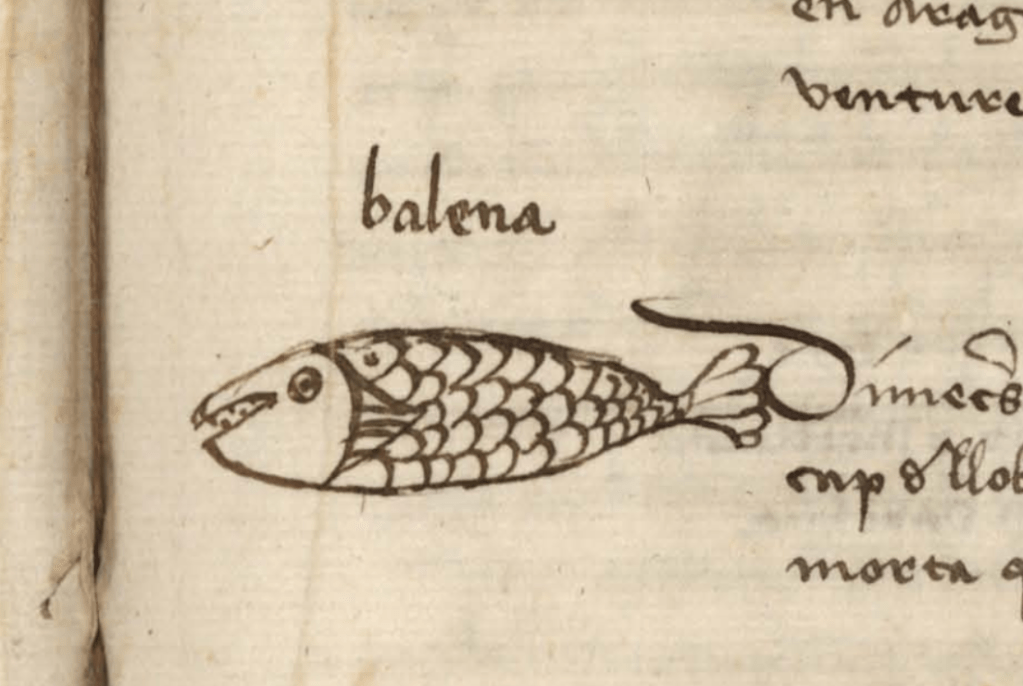 en arag
venture
balena
Dimecs
cap d llob
morta q